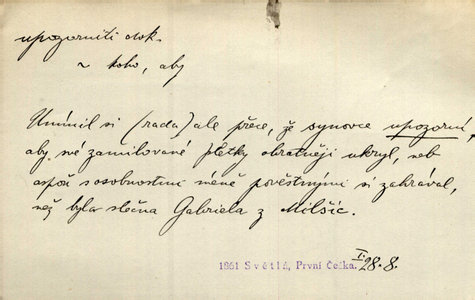 upozorniti dok.
~ koho, aby
Umínil si (rada) ale přece, že synovce upozorní,
aby své zamilované pletky obratněji ukryl, neb
aspoň s osobnostmi méně pověstnými si zahrával,
než byla slečna Gabriela z Milšic.
1861 Světlá, První Češka. I. 28.8.